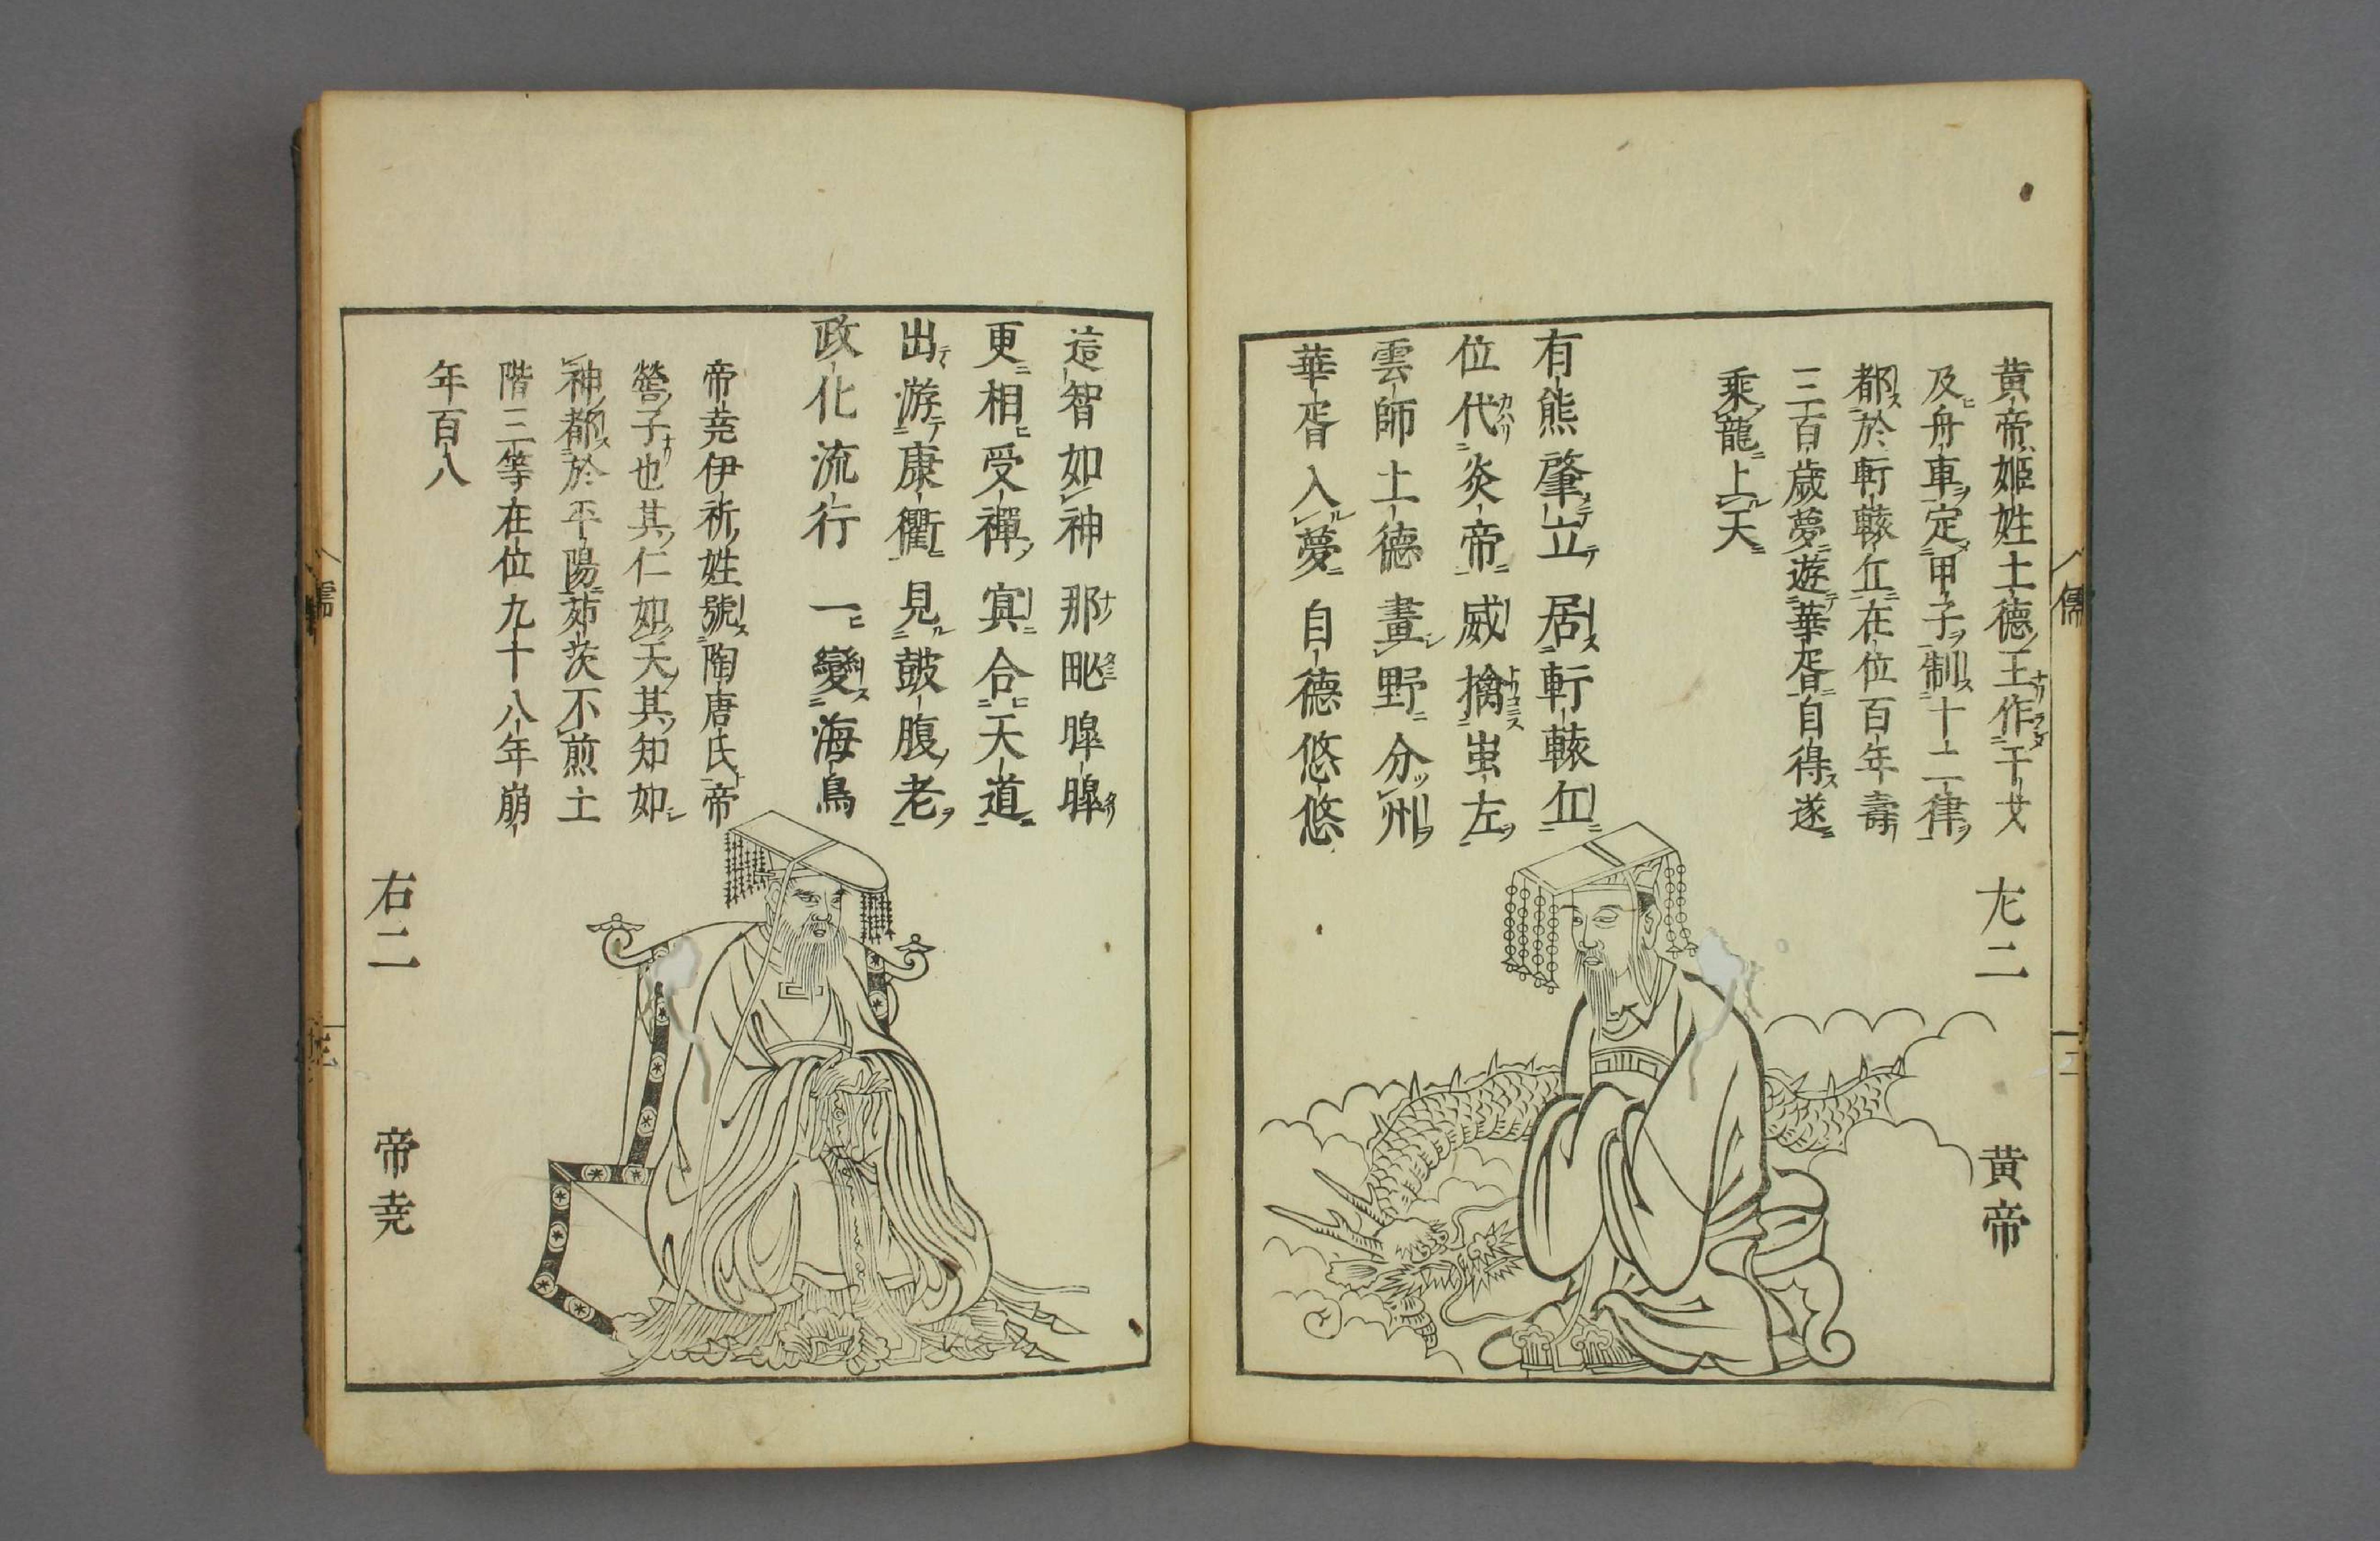 黄帝姬姓土德王作干戈
及舟車定甲子制十二律
都於軒轅丘在位百年壽
三百歲夢遊華胥自得遂
乘龍上天
左二 黄帝
有熊肇立 居軒轅丘
位代炎帝 威擒蚩左
雲師土德 畫野分州
華胥入夢 自德悠悠
儒
這智如神 那畝皞皞
更相受禪 冥合天道
出游康衢 見鼓腹老
政化流行 一變海島
帝尭伊祈姓號陶唐氏帝
嚳子也其仁如天其知如
神都於平陽茆茨不煎土
階三等在位九十八年崩
年百八
右二 帝尭
儒